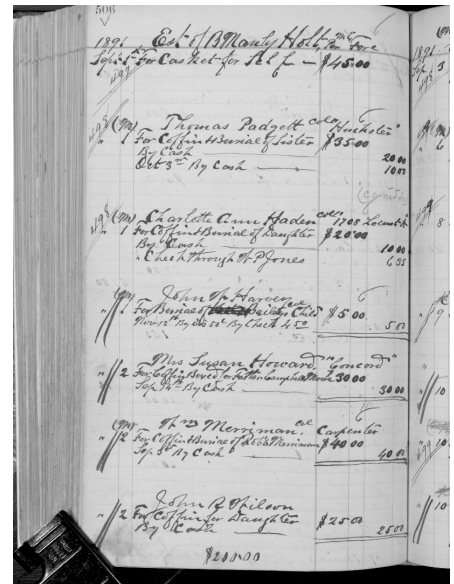 506
1891 Est of B Manly Holt
Sept 1st For Casket for Self — $45.00
Thomas Padgett Cold "Huckster"
" 1 For Coffin & Burial of Sister $35.00
By Cash 20 00
Oct 3rd By Cash 10 00
Charlotte Ann Haden Cold 1708 Locust
" 1 For Coffin & Burial of Daughter $20.00
By Cash 10 00
" Check through W. P. Jones 6 35
John W Harvey
" 1 For Burial of Child $5.00
Nov 12th By 50c By Check 4 50 5 00
Mrs Susan Howard "Concord"
" 2 For Coffin Boxed for Father 30 00
Sep By Cash 30 00
Wm Merriman Col Carpenter
" 2 For Coffin & Burial of Merriman $40 00
Sep 3rd By Cash 40 00
John R Wilson
" 2 For Coffin for Daughter $25 00
By Cash 25 00
$200.00
1891
Sept 3
" 6
" 8
" 9
" 10
" 10
" 10